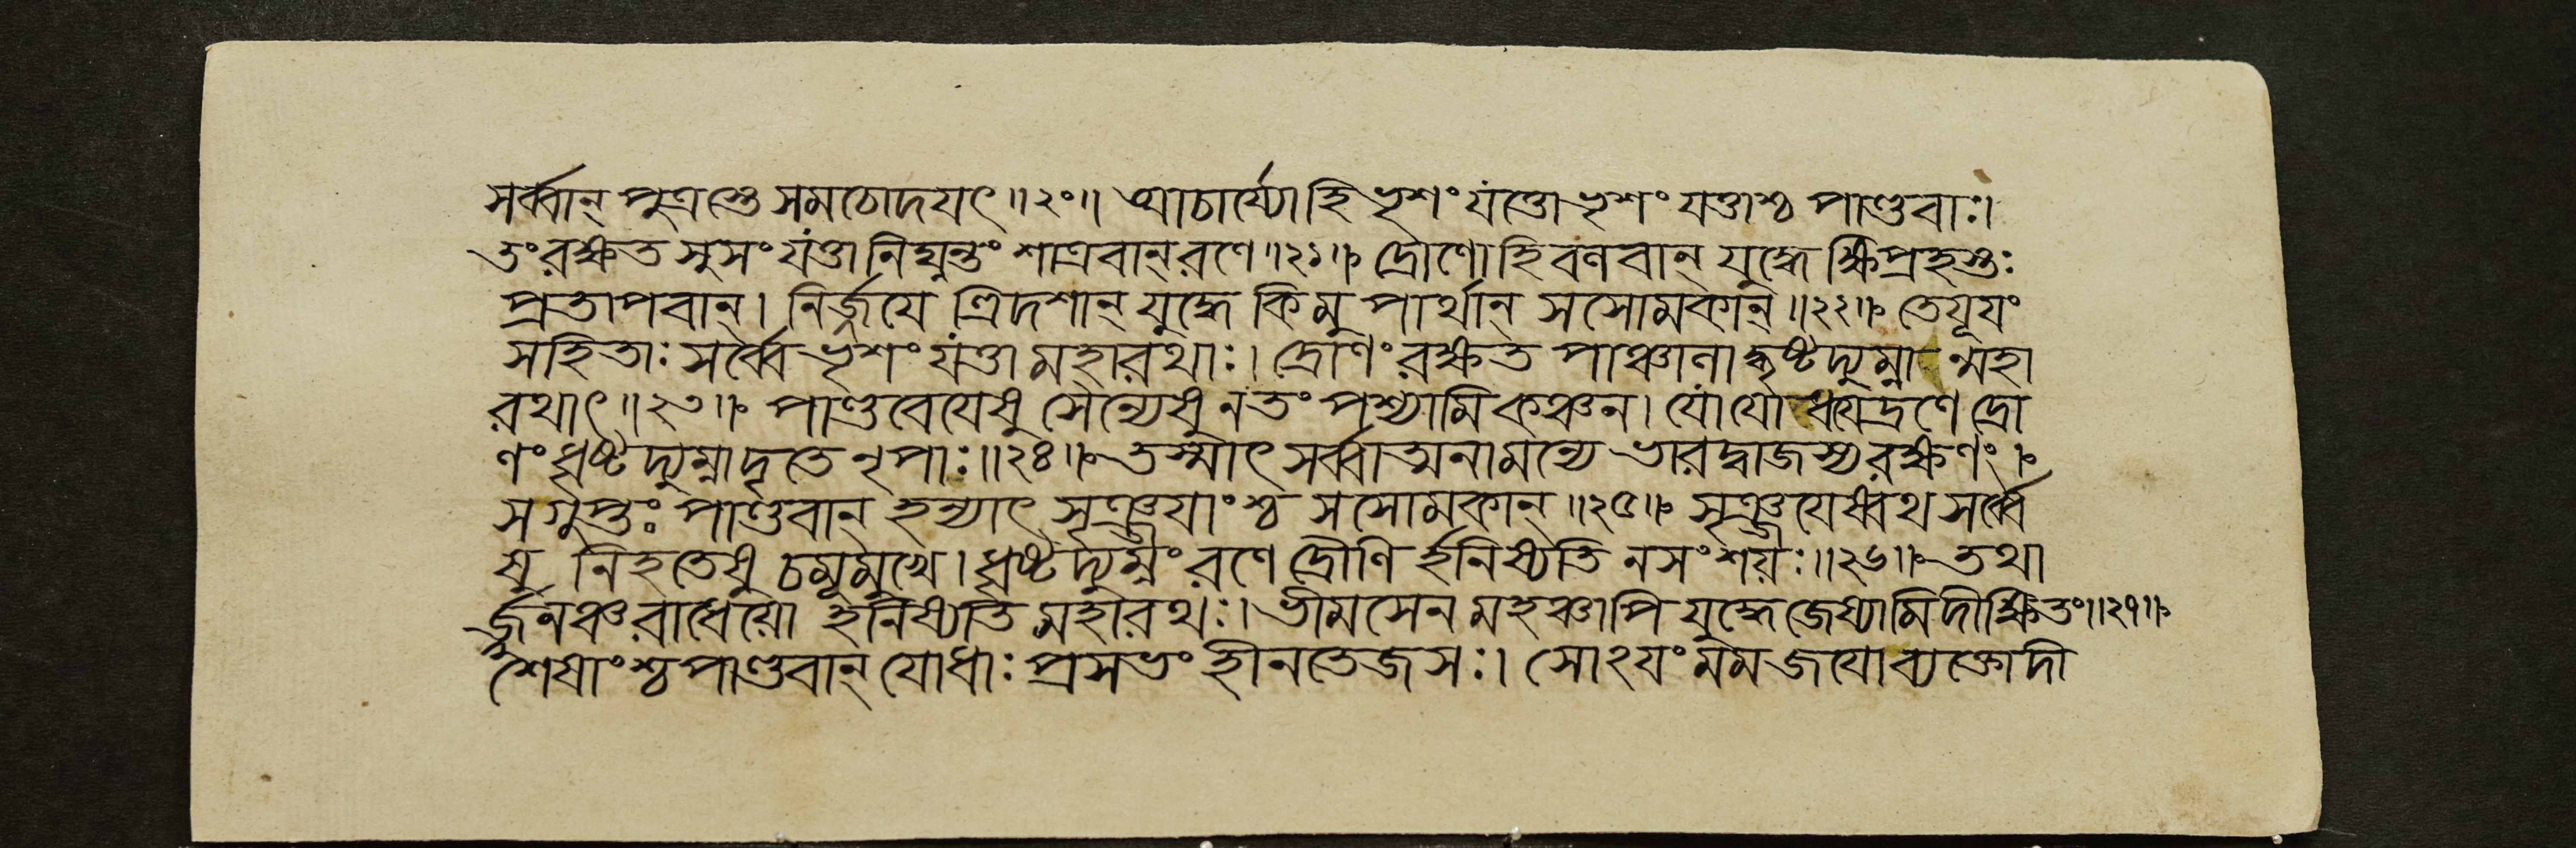 সর্ব্বান্ পুত্রস্তে সমচোদযৎ॥২০॥ আচার্য্যো হি ভৃশং যত্তো ভৃশং যত্তাশ্চ পাণ্ডবাঃ।
তং রক্ষত সুসংযত্তা নিঘ্নন্তং শাত্রবান্ রণে॥২১॥ দ্রোণো হি বলবান্ যুদ্ধে ক্ষিপ্রহস্তঃ
প্রতাপবান্। নির্জ্জযে ত্রিদশান্ যুদ্ধে কিমু পার্থান্ সসোমকান্॥২২॥ তে যূযং
সহিতাঃ সর্ব্বে ভৃশং যত্তা মহারথাঃ। দ্রোণং রক্ষত পাঞ্চালাদ্ধৃষ্টদ্যুম্নান্মহা
রথাৎ॥২৩॥ পাণ্ডবেযেষু সৈন্যেষু ন তং পশ্যামি কঞ্চন। যো যোধযেদ্রণে দ্রো
ণং ধৃষ্টদ্যুম্নাদৃতে নৃপাঃ॥২৪॥ তস্মাৎ সর্ব্বাত্মনা মন্যে ভারদ্বাজস্য রক্ষণং।
স গুপ্তঃ পাণ্ডবান্ হন্যাৎ সৃঞ্জযাংশ্চ সসোমকান্॥২৫॥ সৃঞ্জযেষ্বথ সর্ব্বে
ষু নিহতেষু চমূমুখে। ধৃষ্টদ্যুম্নং রণে দ্রৌণি র্হনিষ্যতি ন সংশযঃ॥২৬॥ তথা
র্জ্জুনঞ্চ রাধেযো হনিষ্যতি মহারথঃ। ভীমসেনমহঞ্চাপি যুদ্ধে জেষ্যামি দীক্ষিতং॥২৭॥
শেষাংশ্চ পাণ্ডবান্ যোধাঃ প্রসভং হীনতেজসঃ। সোঽযং মম জযো ব্যক্তো দী